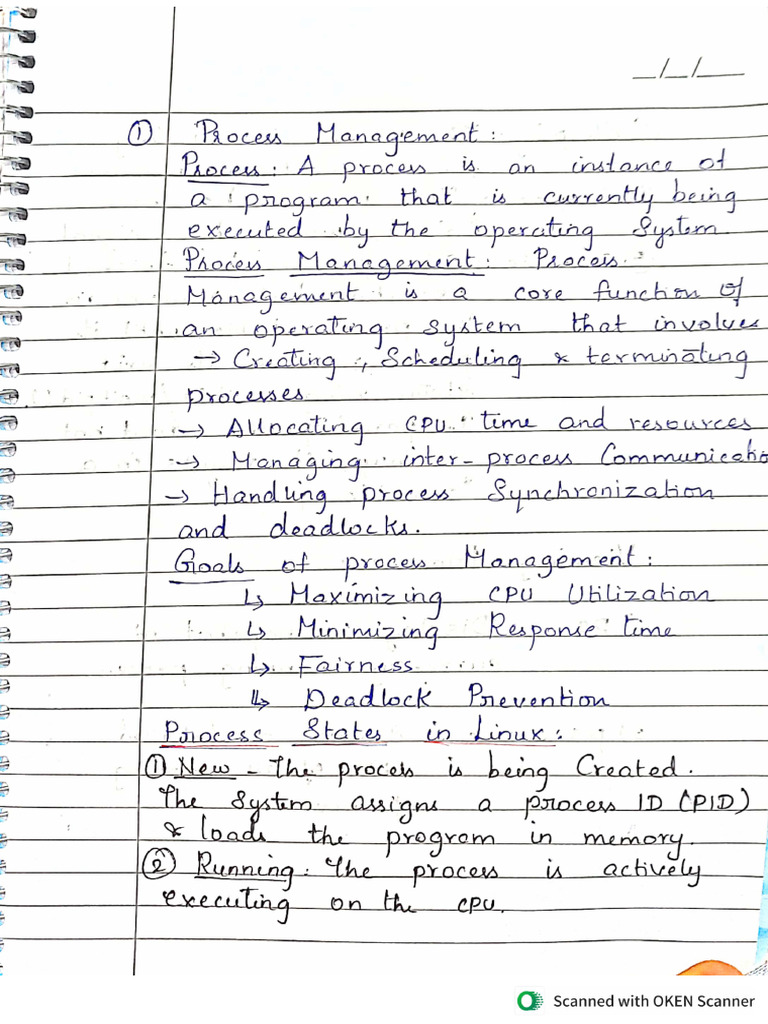 _/_/_
① Process Management:
Process: A process is an instance of
a program that is currently being
executed by the operating System.
Process Management: Process
Management is a core function of
an operating system that involves
→ Creating, Scheduling & terminating
processes
→ Allocating CPU time and resources
→ Managing inter-process Communicatio
→ Handling process Synchronization
and deadlocks.
Goals of process Management:
↳ Maximizing CPU Utilization
↳ Minimizing Response time
↳ Fairness
↳ Deadlock Prevention
Process States in Linux:
① New - The process is being Created.
The System assigns a process ID (PID)
& loads the program in memory.
② Running: The process is actively
executing on the CPU.
Scanned with OKEN Scanner